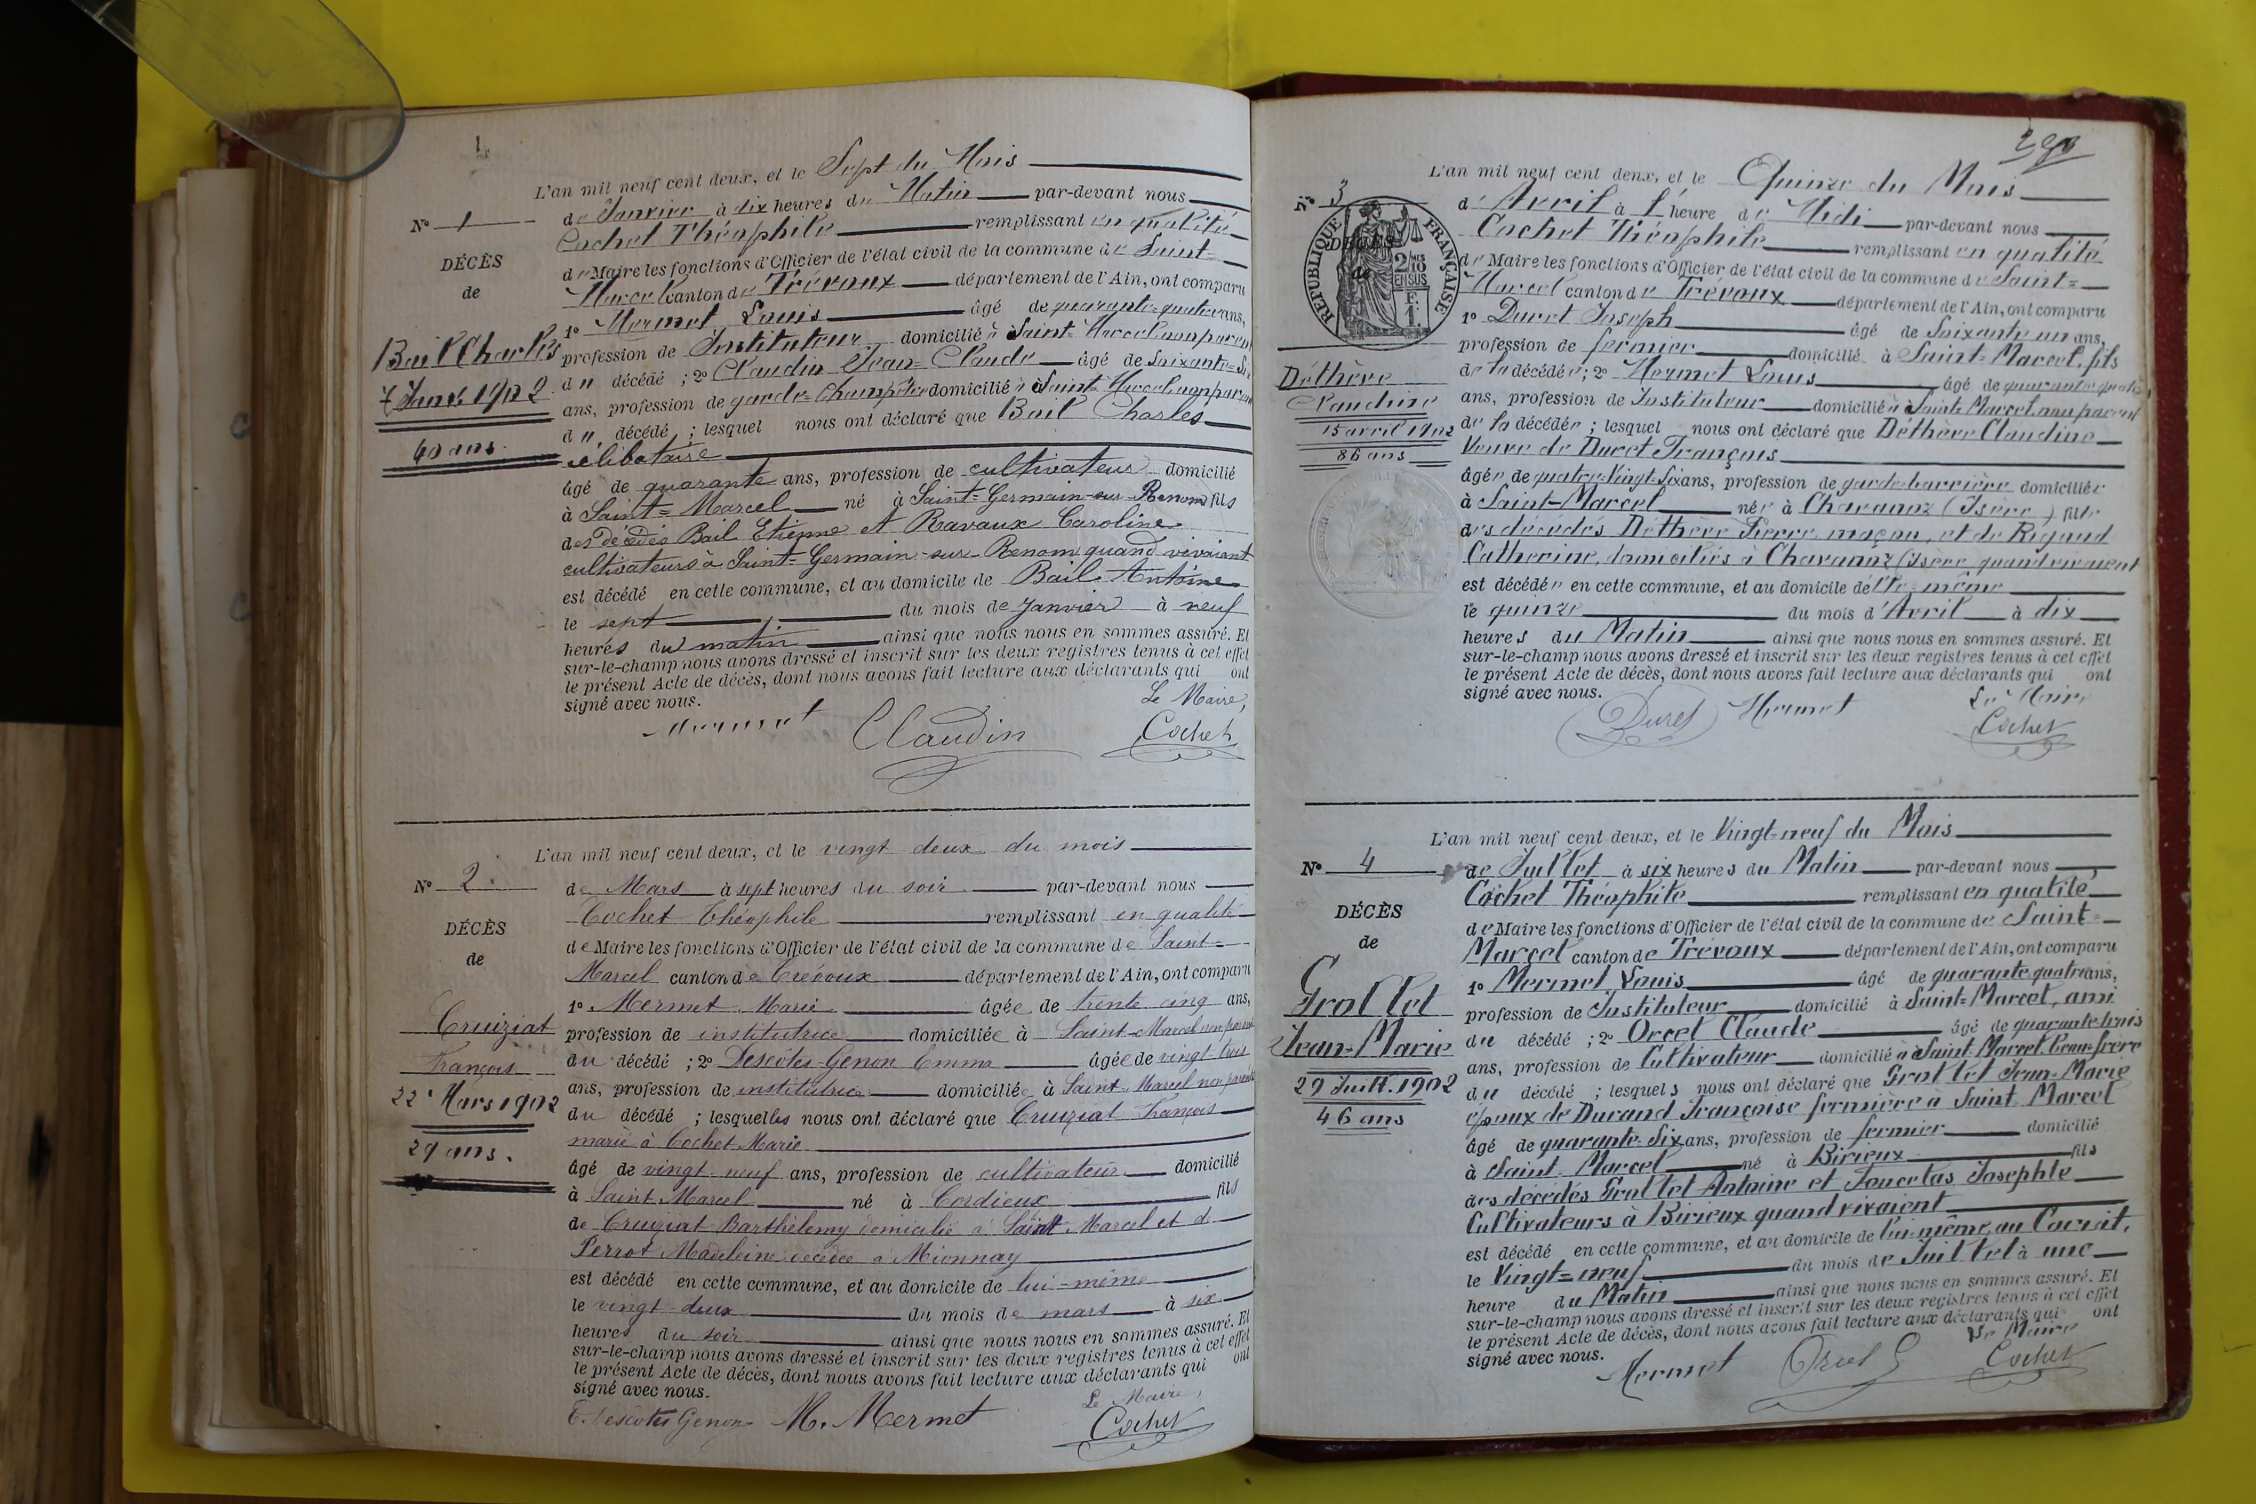 1
L'an mil neuf cent deux, et le Sept du Mois
N° 1
de Janvier à dix heures du Matin par-devant nous
Cochet Théophile remplissant en qualité
DÉCÈS
de Maire les fonctions d'Officier de l'état civil de la commune de Saint=
de
Marcel canton de Trévoux département de l'Ain, ont comparu
1° Mermet Louis âgé de quarante-quatre ans,
Bail Charles
profession de Instituteur domicilié à Saint=Marcel non parent
7 Janv. 1902
du décédé ; 2° Claudin Jean=Claude âgé de Soixante=
40 ans.
ans, profession de garde=Champêtre domicilié à Saint Marcel non parent
du décédé ; lesquel nous ont déclaré que Bail Charles
célibataire
âgé de quarante ans, profession de cultivateur domicilié
à Saint=Marcel né à Saint=Germain-sur-Renom fils
des décédés Bail Etienne et Ravaux Caroline
cultivateurs à Saint=Germain-sur-Renom quand vivaient
est décédé en cette commune, et au domicile de Bail Antoine
le sept du mois de Janvier à neuf
heures du matin ainsi que nous nous en sommes assuré. Et
sur-le-champ nous avons dressé et inscrit sur les deux registres tenus à cet effet
le présent Acte de décès, dont nous avons fait lecture aux déclarants qui ont
signé avec nous.
Le Maire,
Mermet Claudin Cochet
L'an mil neuf cent deux, et le vingt deux du mois
N° 2
de Mars à sept heures du soir par-devant nous
Cochet Théophile remplissant en qualité
DÉCÈS
de Maire les fonctions d'Officier de l'état civil de la commune de Saint=
de
Marcel canton de Trévoux département de l'Ain, ont comparu
1° Mermet Marie âgée de trente cinq ans,
Cruiziat
profession de institutrice domiciliée à Saint-Marcel non parente
François
du décédé ; 2° Descôtes-Genon Emma âgée de vingt trois
22 Mars 1902
ans, profession de institutrice domiciliée à Saint-Marcel non parente
29 ans.
du décédé ; lesquelles nous ont déclaré que Cruiziat François
marié à Cochet Marie
âgé de vingt-neuf ans, profession de cultivateur domicilié
à Saint Marcel né à Cordieux fils
de Cruiziat Barthélemy domicilié à Saint Marcel et d
Perrot Madeleine décédée à Mionnay
est décédé en cette commune, et au domicile de lui-même
le vingt-deux du mois de mars à six
heures du soir ainsi que nous nous en sommes assuré. Et
sur-le-champ nous avons dressé et inscrit sur les deux registres tenus à cet effet
le présent Acte de décès, dont nous avons fait lecture aux déclarants qui ont
signé avec nous.
Le Maire,
E. Descôtes Genon M. Mermet Cochet
290
L'an mil neuf cent deux, et le Quinze du Mois
N° 3
d'Avril à 1 heure de Midi par-devant nous
Cochet Théophile remplissant en qualité
RÉPUBLIQUE FRANÇAISE
DÉCÈS
de
2/10 EN SUS
F. 1
de Maire les fonctions d'Officier de l'état civil de la commune de Saint=
Marcel canton de Trévoux département de l'Ain, ont comparu
1° Duret Joseph âgé de Soixante un ans,
profession de fermier domicilié à Saint=Marcel, fils
Déthève
Claudine
15 avril 1902
86 ans
de la décédée ; 2° Mermet Louis âgé de quarante quatre
ans, profession de Instituteur domicilié à Saint=Marcel non parent
de la décédée ; lesquel nous ont déclaré que Déthève Claudine
Veuve de Duret François
âgée de quatre-Vingt-Six ans, profession de garde-barrière domiciliée
à Saint-Marcel née à Chavanoz (Isère) fille
des décédés Déthève Pierre, maçon, et de Rigaud
Catherine, domiciliés à Chavanoz (Isère) quand vivaient
est décédée en cette commune, et au domicile d'elle-même
le quinze du mois d'Avril à dix
heures du Matin ainsi que nous nous en sommes assuré. Et
sur-le-champ nous avons dressé et inscrit sur les deux registres tenus à cet effet
le présent Acte de décès, dont nous avons fait lecture aux déclarants qui ont
signé avec nous.
Le Maire
Duret Mermet Cochet
L'an mil neuf cent deux, et le Vingt=neuf du Mois
N° 4
de Juillet à six heures du Matin par-devant nous
Cochet Théophile remplissant en qualité
DÉCÈS
de Maire les fonctions d'Officier de l'état civil de la commune de Saint=
de
Marcel canton de Trévoux département de l'Ain, ont comparu
1° Mermet Louis âgé de quarante quatre ans,
Grollet
profession de Instituteur domicilié à Saint=Marcel, ami
Jean=Marie
du décédé ; 2° Orcel Claude âgé de quarante trois
29 Juill. 1902
ans, profession de Cultivateur domicilié à Saint-Marcel, beau-frère
46 ans
du décédé ; lesquels nous ont déclaré que Grollet Jean=Marie
époux de Durand Françoise fermière à Saint Marcel
âgé de quarante-Six ans, profession de fermier domicilié
à Saint-Marcel né à Birieux fils
des décédés Grollet Antoine et Joncelas Josephte
Cultivateurs à Birieux quand vivaient
est décédé en cette commune, et au domicile de lui-même, au
le Vingt=neuf du mois de Juillet à une
heure du Matin ainsi que nous nous en sommes assuré. Et
sur-le-champ nous avons dressé et inscrit sur les deux registres tenus à cet effet
le présent Acte de décès, dont nous avons fait lecture aux déclarants qui ont
signé avec nous.
Le Maire
Mermet Orcel C Cochet